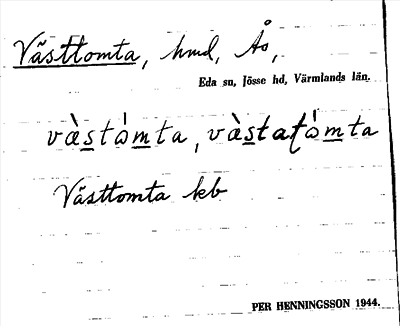 Västtomta, hmd, Ås,
Eda sn, Jösse hd, Värmlands län.
vàstòmta, vàstatòmta
Västtomta kb
PER HENNINGSSON 1944.